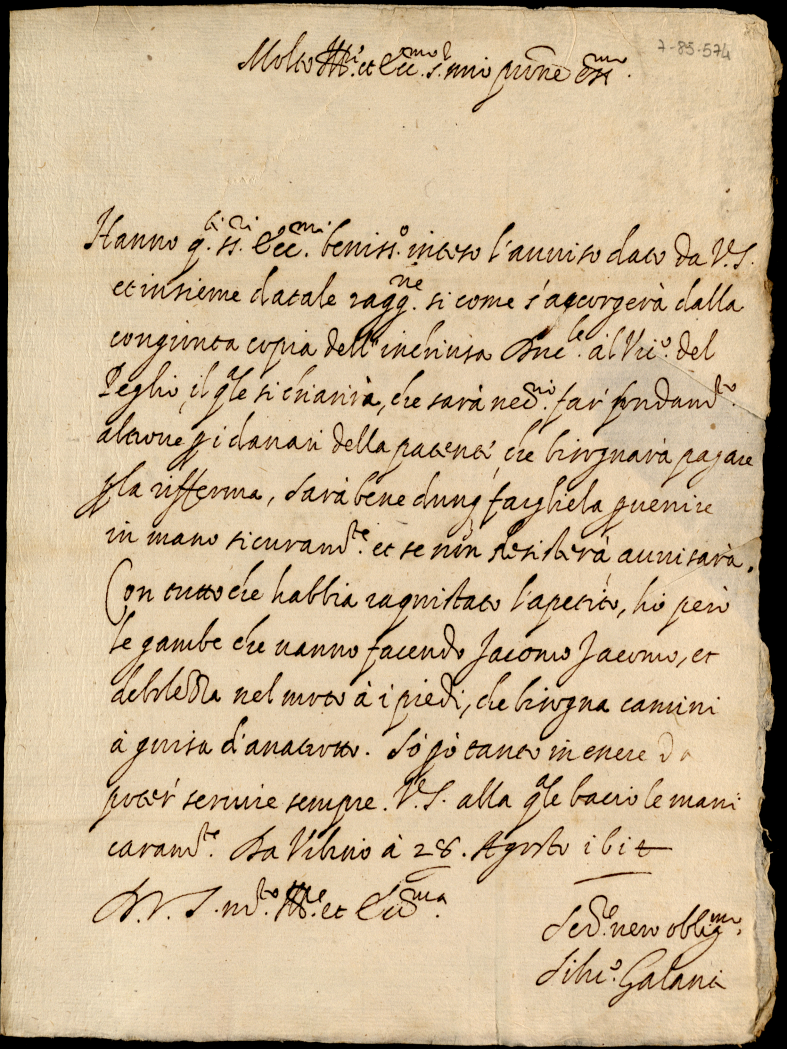 7-85-574
Molto Ill.re et Ecc.mo S.r mio p̃rone oss.mo
Hanno q.ti SS.ri Ecc.mi beniss.o inteso l'auuiso dato da V.S.
et insieme da tale ragg.ne si come s'accorgerà dalla
congiunta copia dell'inchiusa al Vic.o del
Peglio, il q̃le si chiarirà, che sarà nec.rio far
altroue p i danari della patente, che bisognarà pagare
p la rifferma, sarà bene dunq; fargliela peruenire
in mano sicuram.te et se nõn desisterà auuisarà.
Con tutto che habbia raquistato l'apetito, hò però
le gambe che uanno facendo Jacomo Jacomo, et
debolezza nel moto à i piedi, che bisogna camini
à guisa d'anatrotto. Sò p̃o tanto in enere da
poter seruire sempre V.S. alla q̃le bacio le mani
caram.te Da Vrbino à 28. Agosto
D.V.S. m.to Ill.re et Ecc.ma
Se.re uero oblig.mo
Siluio Galani